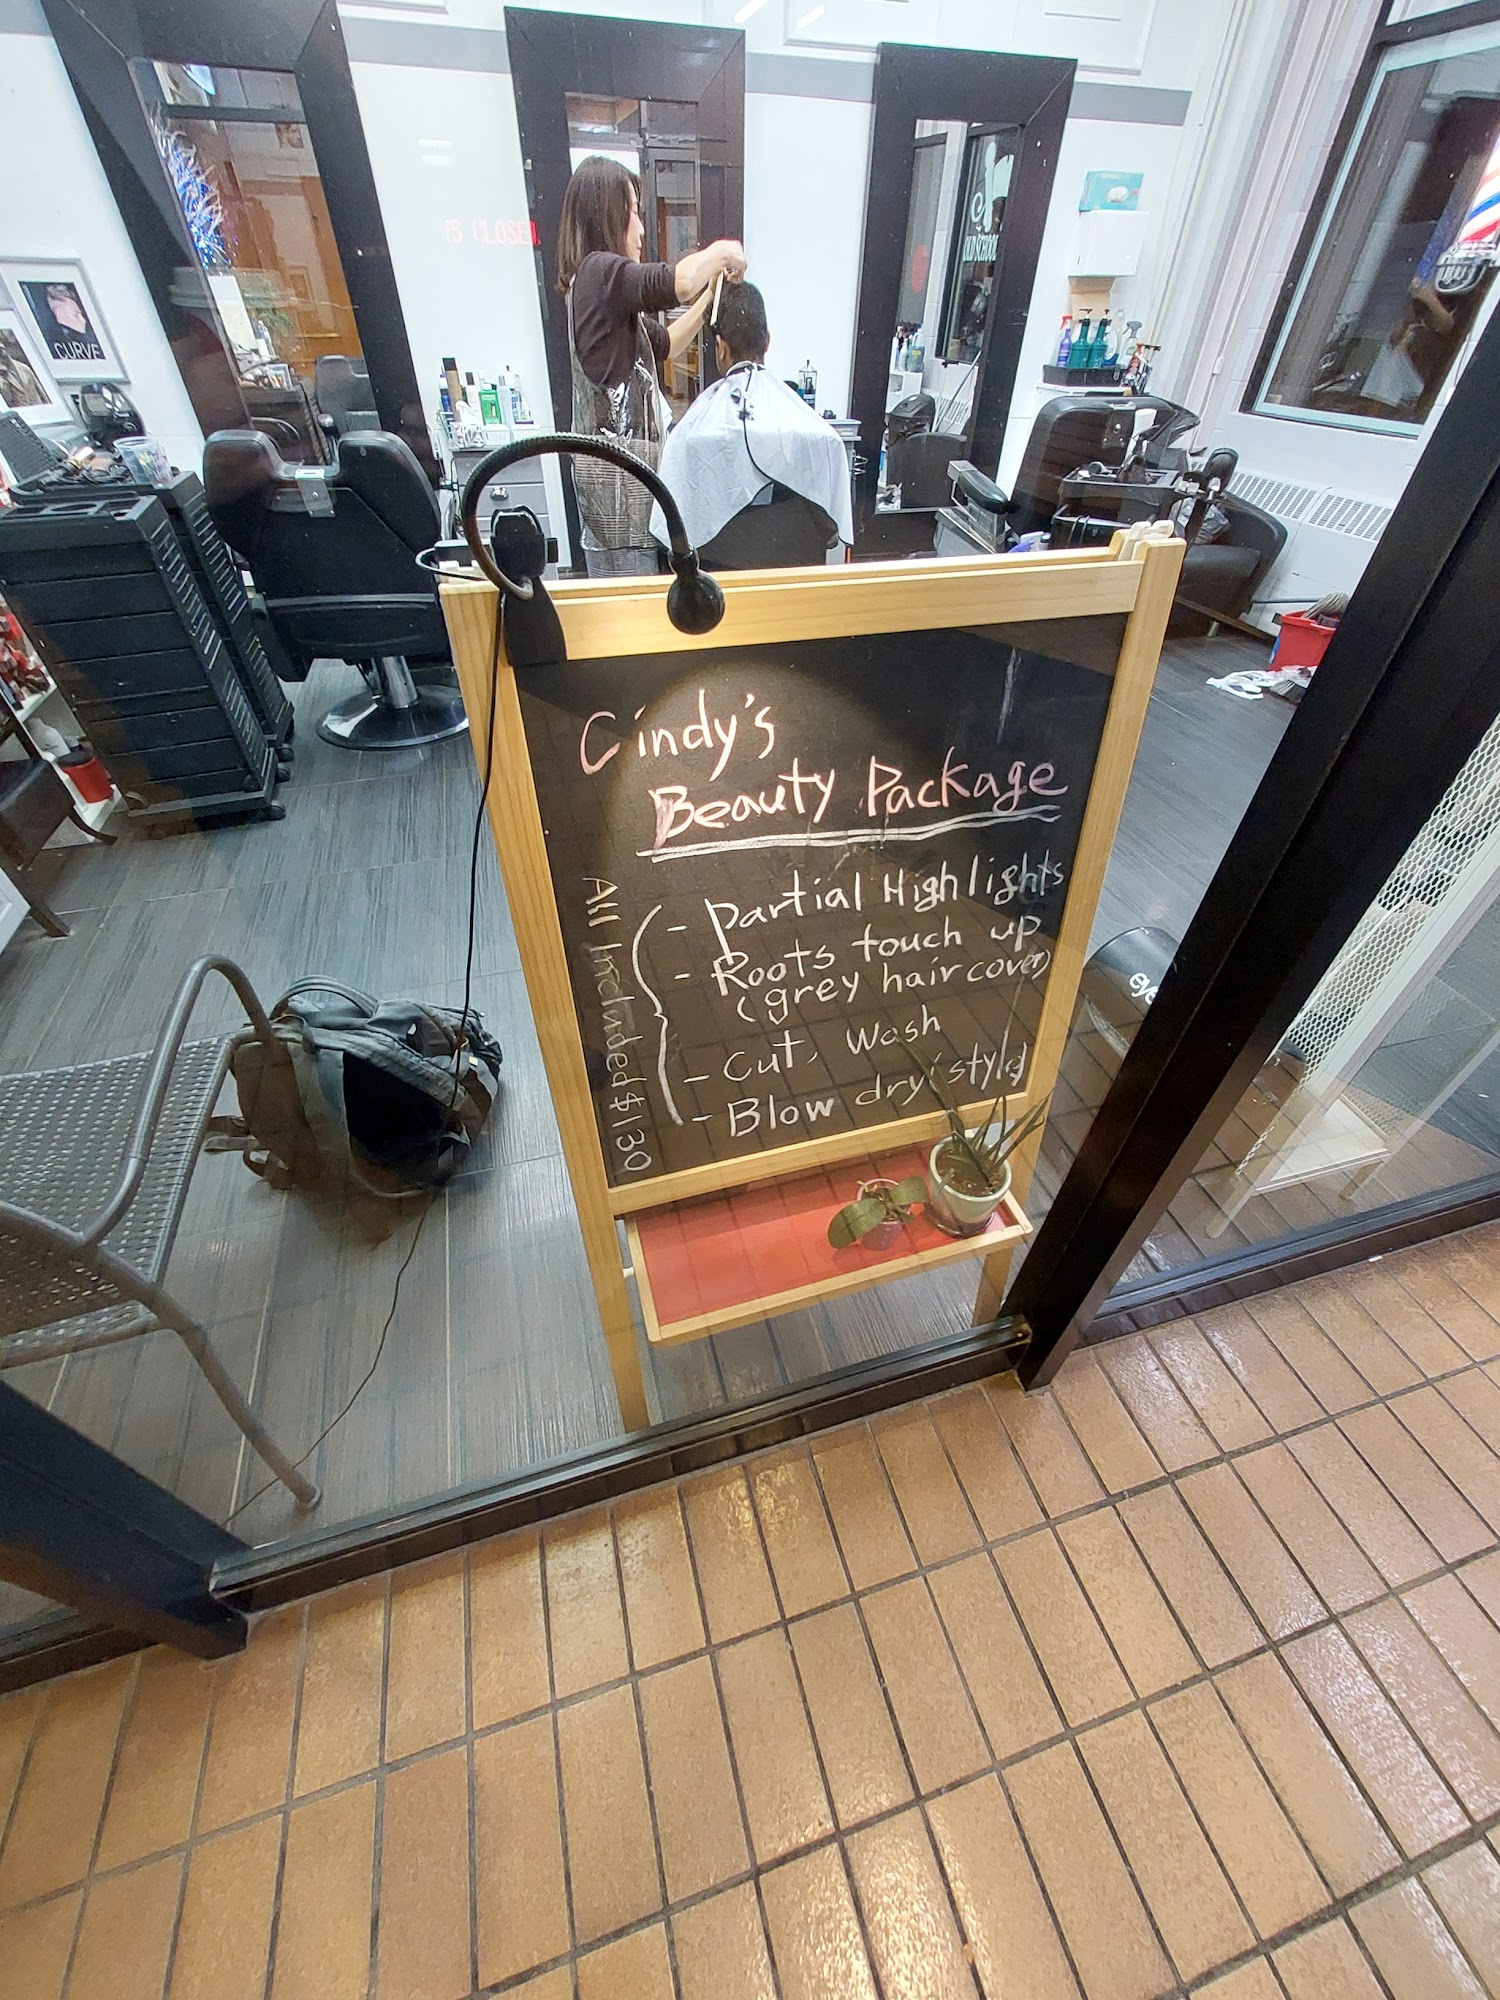 Cindy's
Beauty Package
- Partial Highlights
- Roots touch up
(grey hair cover)
- Cut, Wash
- Blow dry / style
All Included $130
CURVE
IS CLOSED
OLD SCHOOL
eye